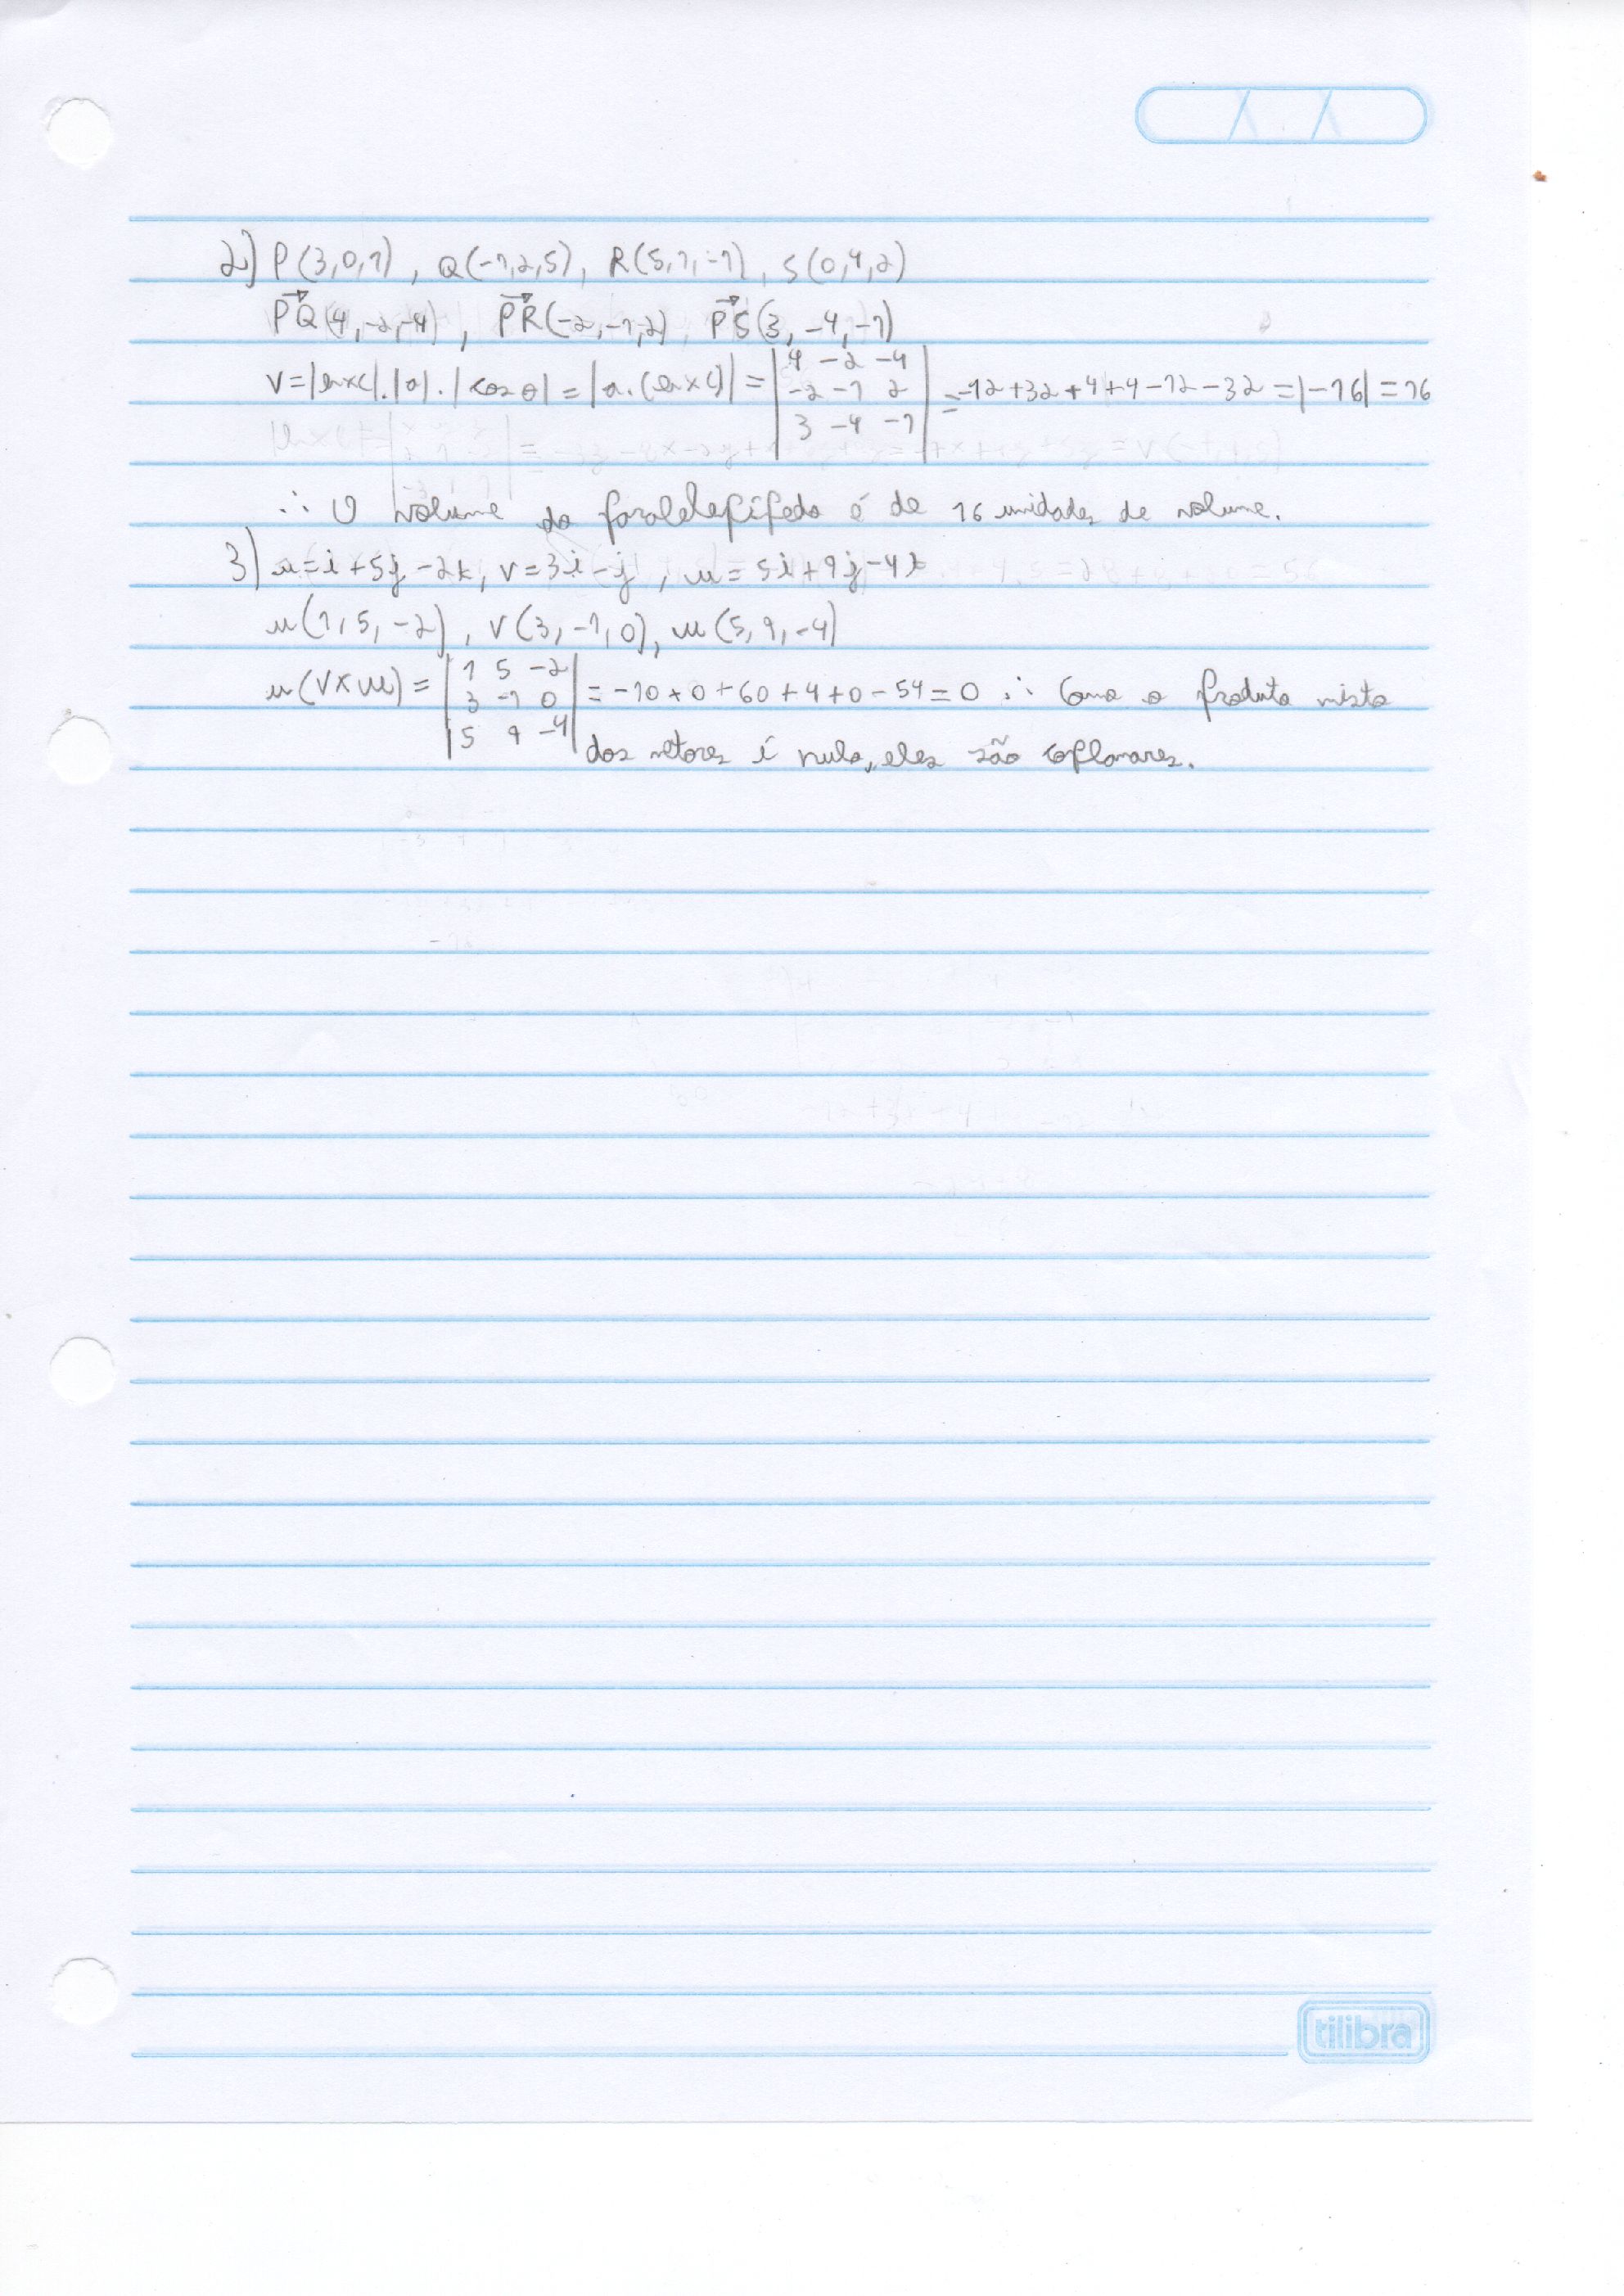 2) P(3,0,1), Q(-1,2,5), R(5,1,-1), S(0,4,2)
PQ(4,-2,-4), PR(-2,-1,2), PS(3,-4,-1)
V=|bxc|.|a|.|cos θ|=|a.(bxc)|=|4 -2 -4| = -12+32+4+4-12-32=|-16|=16
|-2 -1 2|
|3 -4 -1|
∴ O volume do paralelepípedo é de 16 unidades de volume.
3) u=i+5j-2k, v=3i-j, w=5i+9j-4k
u(1,5,-2), v(3,-1,0), w(5,9,-4)
u(vxw)=|1 5 -2| = -10+0+60+4+0-54=0 ∴ Como o produto misto
|3 -1 0|
|5 9 -4|
dos vetores é nulo, eles são coplanares.
tilibra